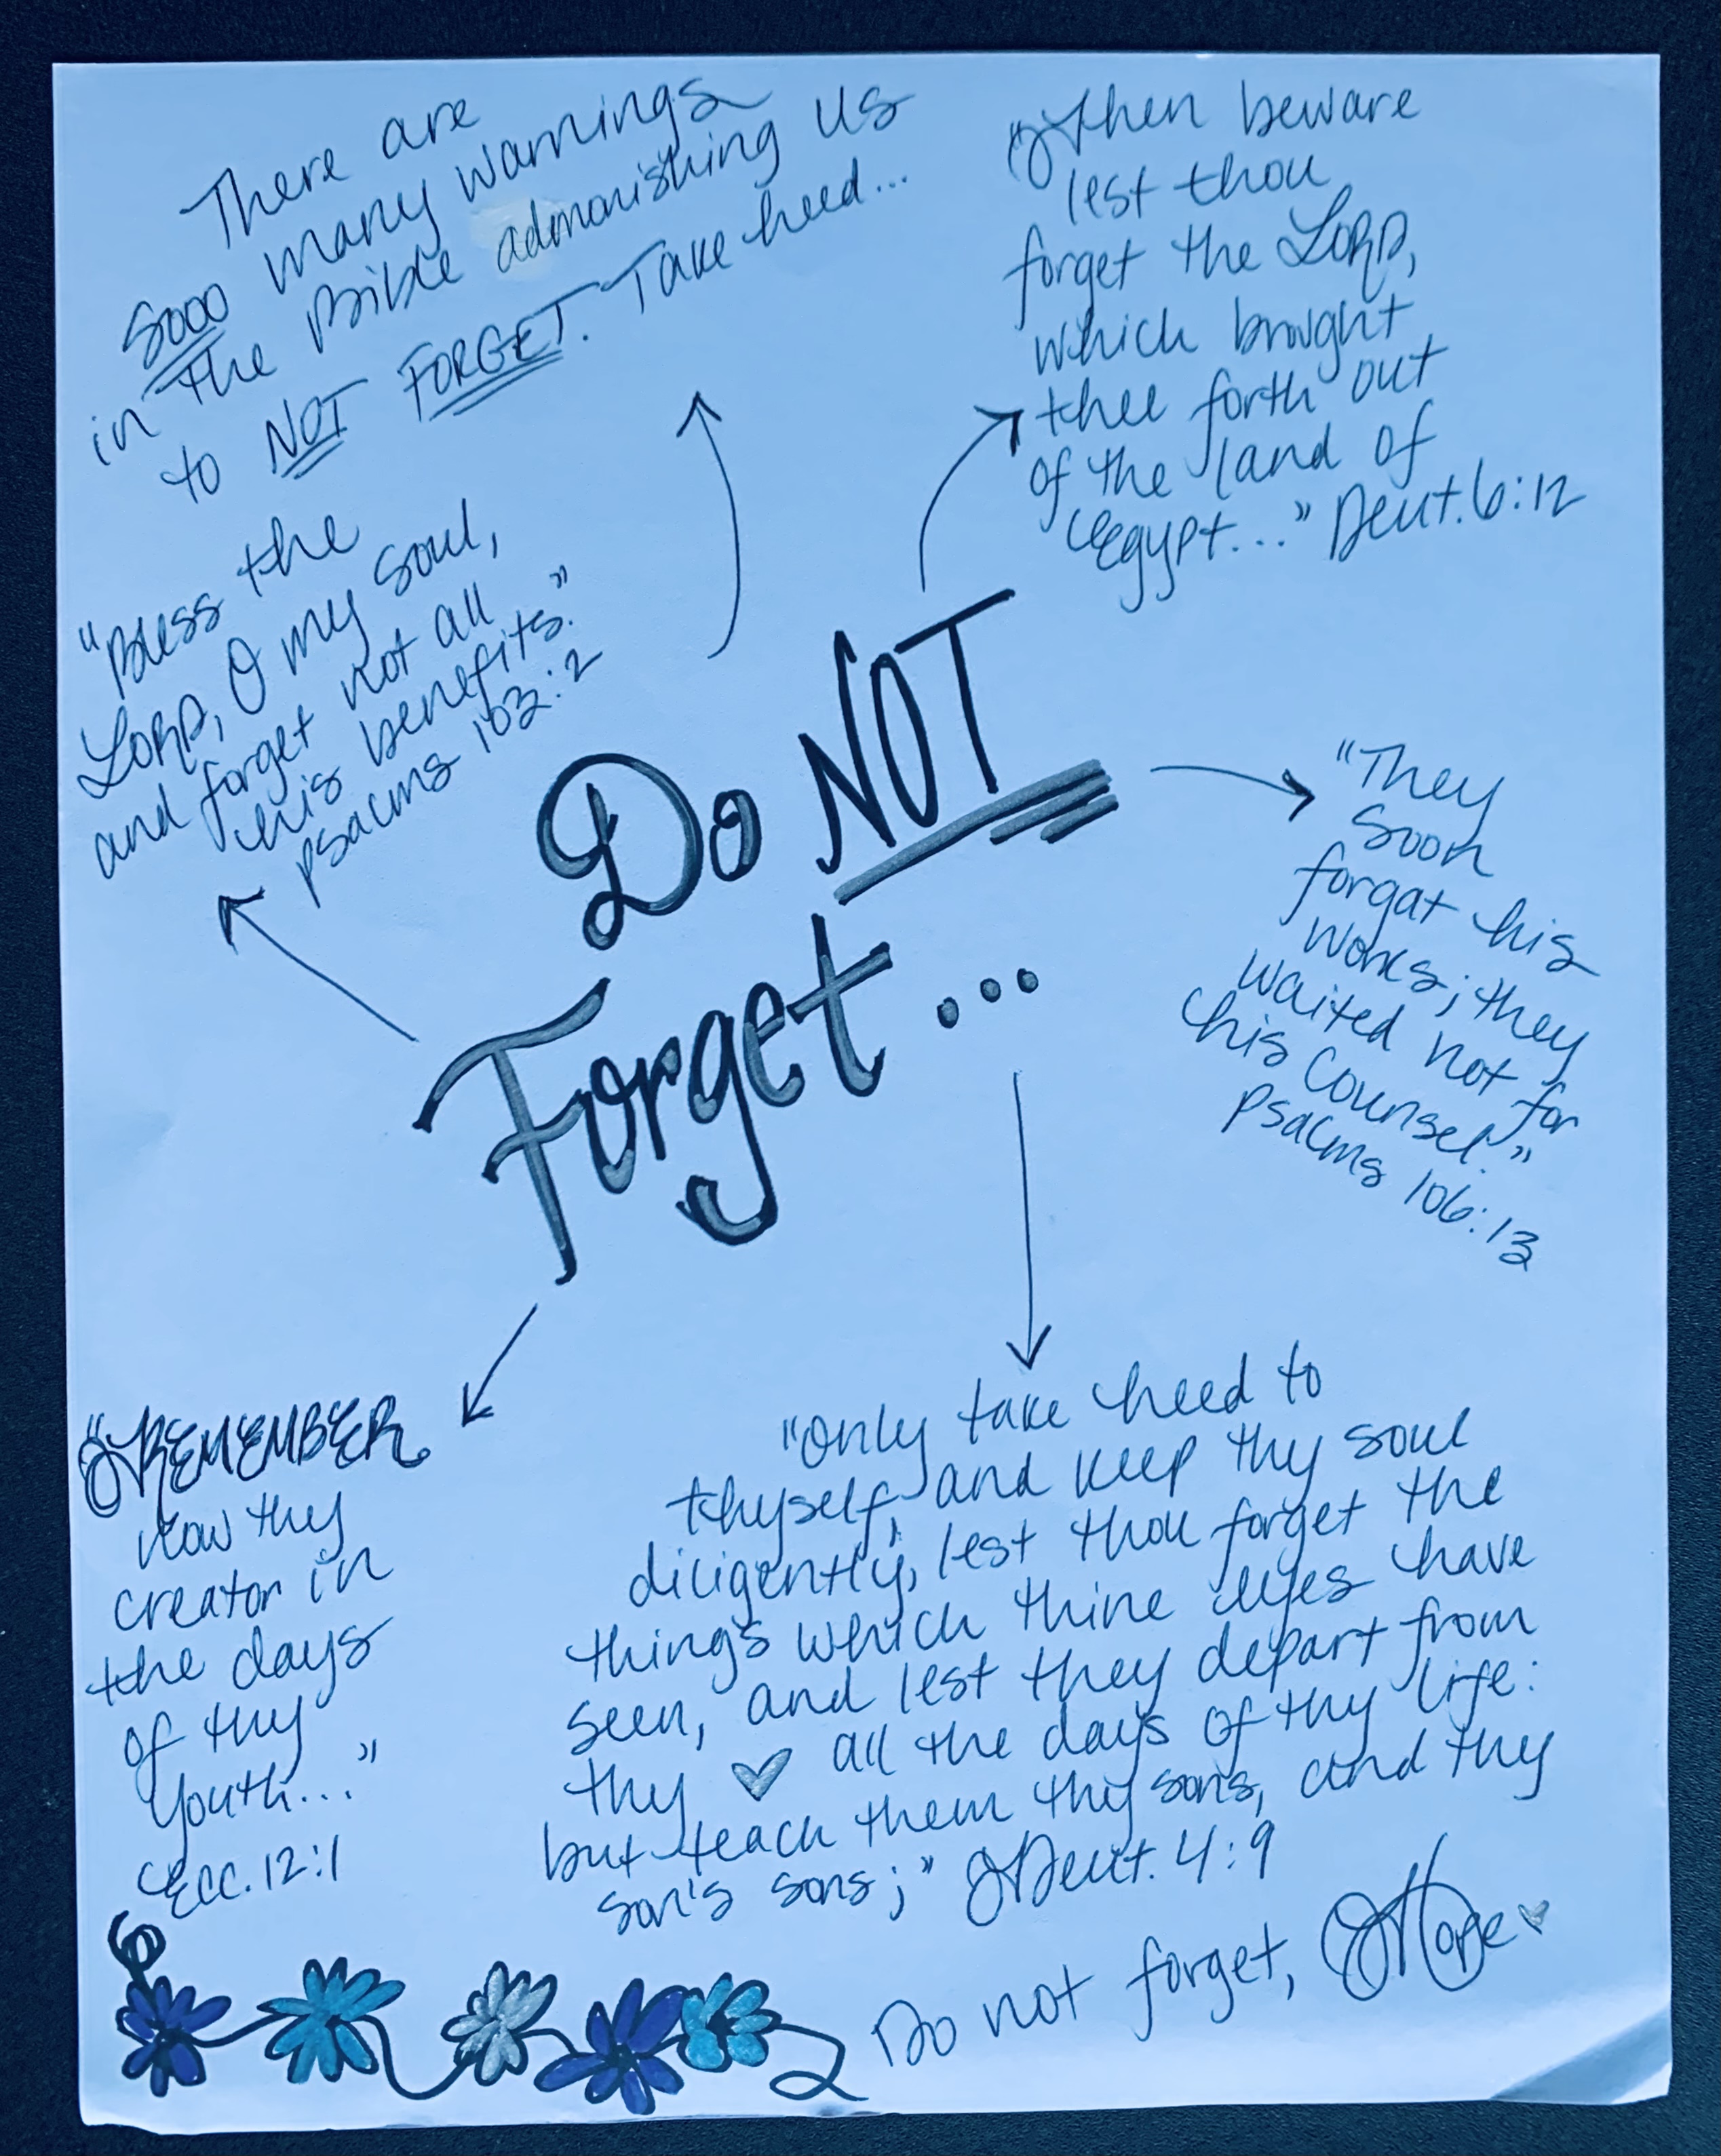 There are
Sooo many warnings
in the Bible admonishing us
to NOT FORGET. Take heed...
"Then beware
lest thou
forget the LORD,
which brought
thee forth out
of the land of
Egypt..." Deut. 6:12
"Bless the
LORD, O my soul,
and forget not all
his benefits."
Psalms 103:2
Do NOT
Forget...
"They
soon
forgat his
works; they
waited not for
his counsel."
Psalms 106:13
"REMEMBER
now thy
creator in
the days
of thy
youth..."
Ecc. 12:1
"Only take heed to
thyself, and keep thy soul
diligently, lest thou forget the
things which thine eyes have
seen, and lest they depart from
thy ♡ all the days of thy life:
but teach them thy sons, and thy
son's sons;" Deut. 4:9
Do not forget, Hope ♡